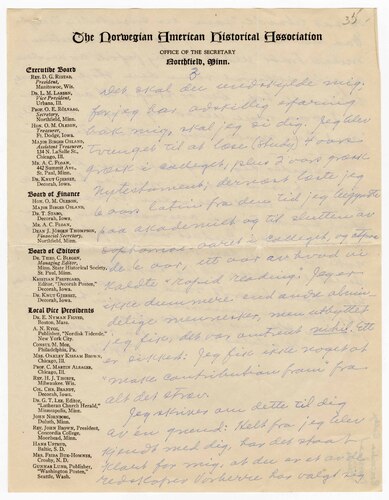 35
The Norwegian American Historical Association
OFFICE OF THE SECRETARY
Northfield, Minn.
3
Executive Board
REV. D. G. RISTAD,
President,
Manitowoc, Wis.
DR. L. M. LARSEN,
Vice President,
Urbana, Ill.
PROF. O. E. RÖLVAAG,
Secretary,
Northfield, Minn.
HON. O. M. OLESON,
Treasurer,
Ft. Dodge, Iowa.
MAJOR BIRGER OSLAND,
Assistant Treasurer,
134 N. LaSalle St.,
Chicago, Ill.
MR. A. C. FLOAN,
442 Summit Ave.,
St. Paul, Minn.
DR. KNUT GJERSET,
Decorah, Iowa.
Board of Finance
HON. O. M. OLESON,
MAJOR BIRGER OSLAND,
DR. T. STABO,
Decorah, Iowa.
MR. A. C. FLOAN,
DEAN J. JÖRGEN THOMPSON,
Financial Secretary,
Northfield, Minn.
Board of Editors
DR. THEO. C. BLEGEN,
Managing Editor,
Minn. State Historical Society,
St. Paul, Minn.
KRISTIAN PRESTGARD,
Editor, "Decorah Posten,"
Decorah, Iowa.
DR. KNUT GJERSET,
Decorah, Iowa.
Local Vice Presidents
DR. E. NYMAN FIGVED,
Boston, Mass.
A. N. RYGG,
Publisher, "Nordisk Tidende,"
New York City.
CONSUL M. MOE,
Philadelphia, Pa.
MRS. OAKLEY KISSAM BROWN,
Chicago, Ill.
PROF. C. MARTIN ALSAGER,
Chicago, Ill.
REV. H. J. THORPE,
Milwaukee, Wis.
COL. CHR. BRANDT,
Decorah, Iowa.
DR. G. T. LEE, Editor,
"Lutheran Church Herald,"
Minneapolis, Minn.
JOHN NORDBOM,
Duluth, Minn.
REV. JOHN BROWN, President,
Concordia College,
Moorhead, Minn.
HANS USTRUD,
Baltic, S. D.
MRS. FRIDA BUE-HOMNES,
Crosby, N. D.
GUNNAR LUND, Publisher,
"Washington Posten,"
Seattle, Wash.
Det skal du undskylde mig;
for jeg har adskillig erfaring
bak mig, skal jeg si dig. Jeg blev
tvunget til at læse (study) 4 aars
græsk college, plus 2 aars græsk
Nytestament; dernæst læste jeg
6 aars latin fra den tid jeg
paa academiet og til slutten av
i college,
6 aar, ett aar av hvad vi
kaldte "rapid reading." Jeg er
ikke dummere end andre almin-
delige mennesker, men utbyttet
jeg fik, det var omtrent nihil. Ett
er sikkert: Jeg fik ikke noget at
"make contribution from" fra
alt det stræv.
Jeg skriver om dette til dig
av én grund: Helt fra jeg blev
kjendt med dig, har det staat
klart for mig, at du er et av de
redskaper Vorherre har valgt sig